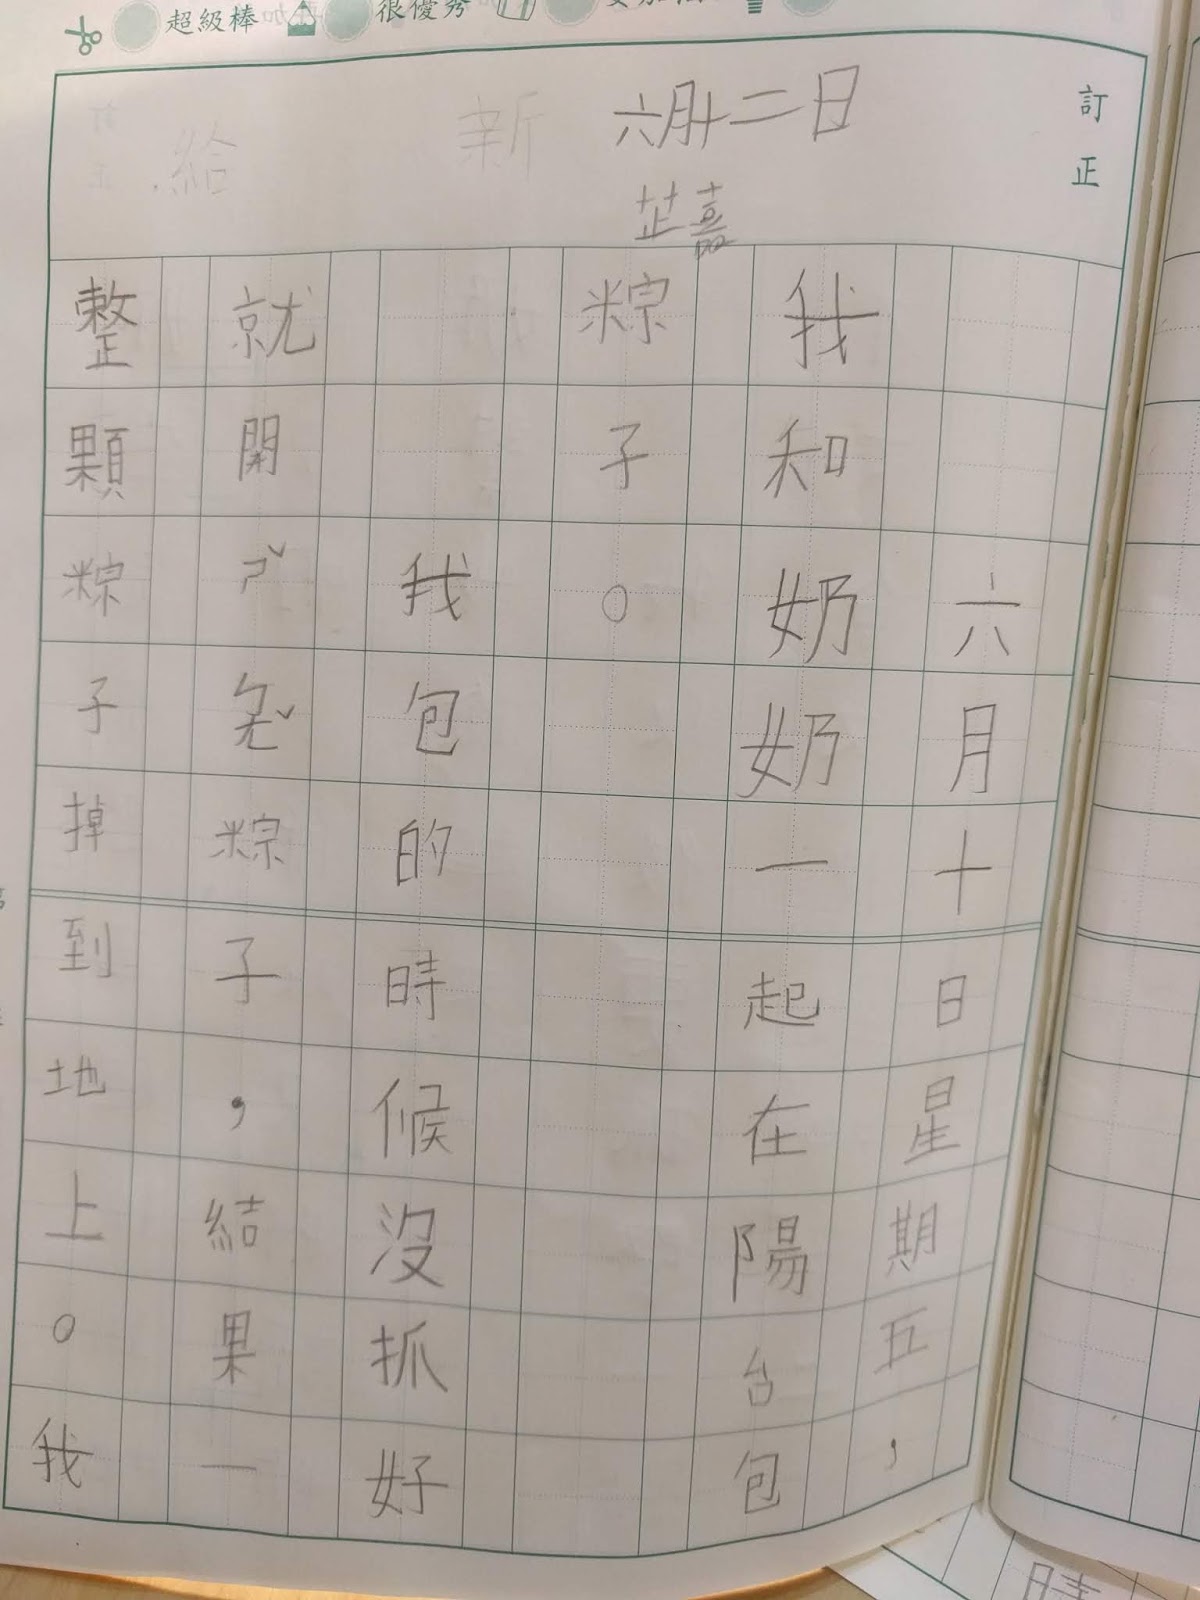 超級棒 很優秀
訂正
六月十二日
新
給
六月十日星期五，
我和奶奶一起在陽台包
粽子。
我包的時候沒抓好
就開ㄕˇㄅㄤˇ粽子，結果一
整顆粽子掉到地上。我